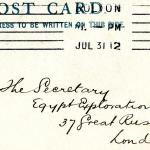 OST CARD
DON
RESS TO BE WRITTEN ON THIS
PM
JUL 31 12
The Secretary
Egypt Exploration
37 Great Rus
Lond